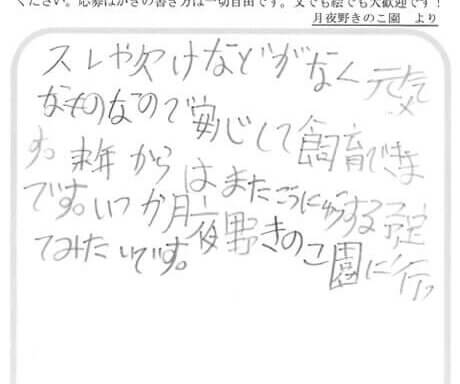 ください。応募はがきの書き方は一切自由です。文でも絵でも大歓迎です！
月夜野きのこ園　より
スレや欠けなどがなく元気
なものなので安心して飼育できま
す。来年からはまたこうにゅうする予定
です。いつか月夜野きのこ園に行っ
てみたいです。